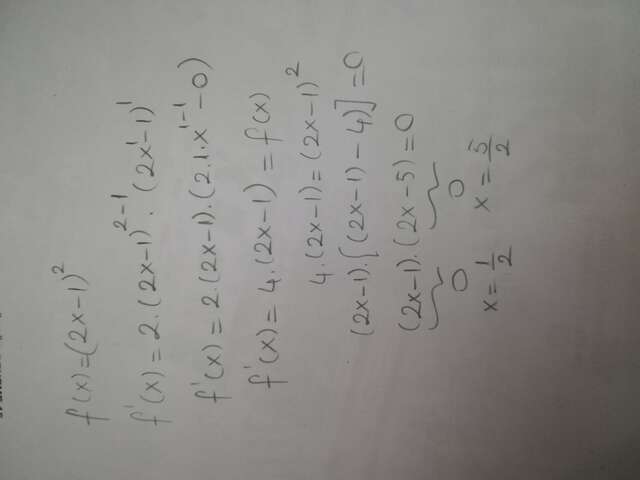 f(x)=(2x-1)²
f'(x)=2.(2x-1)²⁻¹.(2x¹-1)¹
f'(x)=2.(2x-1).(2.1.x¹⁻¹-0)
f'(x)=4.(2x-1)=f(x)
4.(2x-1)=(2x-1)²
(2x-1).[(2x-1)-4)]=0
(2x-1).(2x-5)=0
0 0
x=1/2 x=5/2